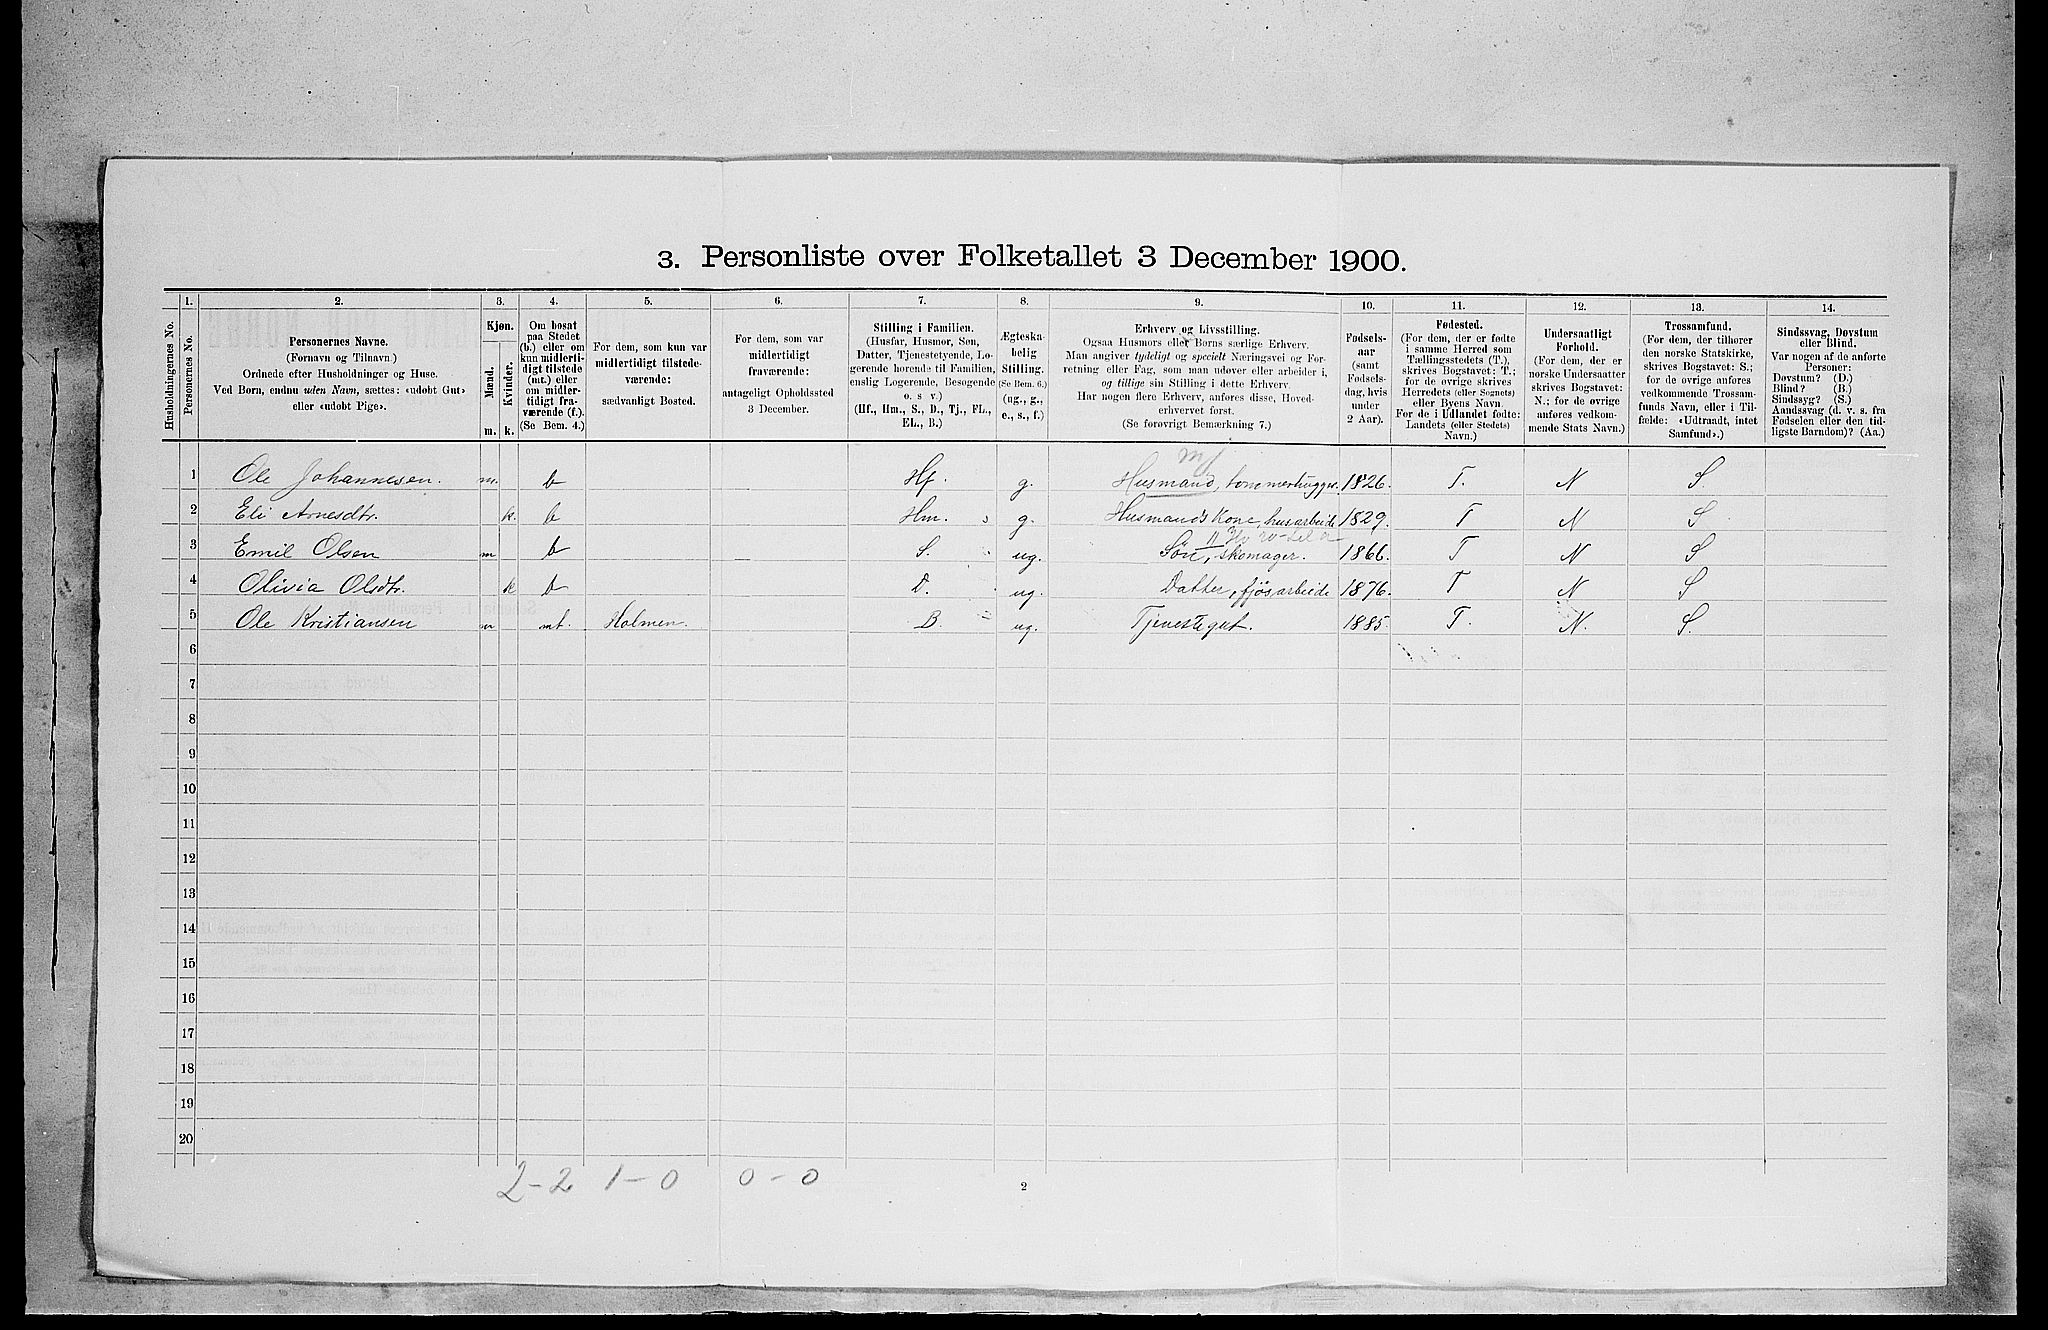 3. Personliste over Folketallet 3 December 1900.
1. 2. 3. 4. 5. 6. 7. 8. 9. 10. 11. 12. 13. 14.
Husholdningernes No.
Personernes No.
Personernes Navne.
(Fornavn og Tilnavn.)
Ordnede efter Husholdninger og Huse.
Ved Børn, endnu uden Navn, sættes: «udøbt Gut»
eller «udøbt Pige».
Kjøn.
Mænd.
Kvinder.
m. k.
Om bosat
paa Stedet
(b.) eller om
kun midlerti-
digt tilstede
(mt.) eller
om midler-
tidigt fra-
værende (f.).
(Se Bem. 4.)
For dem, som kun var
midlertidigt tilstede-
værende:
sædvanligt Bosted.
For dem, som var
midlertidigt
fraværende:
antageligt Opholdssted
3 December.
Stilling i Familien.
(Husfar, Husmor, Søn,
Datter, Tjenestetyende, Lo-
gerende hørende til Familien,
enslig Logerende, Besøgende
o. s. v.)
(Hf., Hm., S., D., Tj., FL.,
EL., B.)
Ægteska-
belig
Stilling.
(Se Bem. 6.)
(ug., g.,
e., s., f.)
Erhverv og Livsstilling.
Ogsaa Husmors eller Børns særlige Erhverv.
Man angiver tydeligt og specielt Næringsvei og For-
retning eller Fag, som man udøver eller arbeider i,
og tillige sin Stilling i dette Erhverv.
Har nogen flere Erhverv, anføres disse, Hoved-
erhvervet først.
(Se forøvrigt Bemærkning 7.)
Fødsels-
aar
(samt
Fødsels-
dag, hvis
under
2 Aar).
Fødested.
(For dem, der er fødte
i samme Herred som
Tællingsstedets (T.),
skrives Bogstavet: T.;
for de øvrige skrives
Herredets (eller Sognets)
eller Byens Navn.
For de i Udlandet fødte:
Landets (eller Stedets)
Navn.)
Undersaatligt
Forhold.
(For dem, der er
norske Undersaatter
skrives Bogstavet:
N.; for de øvrige
anføres vedkom-
mende Stats Navn.)
Trossamfund.
(For dem, der tilhører
den norske Statskirke,
skrives Bogstavet: S.;
for de øvrige anføres
vedkommende Trossam-
funds Navn, eller i Til-
fælde: «Udtraadt, intet
Samfund».)
Sindssvag, Døvstum
eller Blind.
Var nogen af de anførte
Personer:
Døvstum? (D.)
Blind? (B.)
Sindssyg? (S.)
Aandssvag (d. v. s. fra
Fødselen eller den tid-
ligste Barndom)? (Aa.)
1 Ole Johannesen. m. b Hf. g. Husmand, tømmerhugger 1826. T. N S.
2 Eli Arnesdtr. k. b Hm. g. Husmandskone, husarbeide 1829. T N S
3 Emil Olsen m b S. ug. Søn, skomager. 1866. T N S
4 Olivia Olsdtr. k b D. ug. Datter, fjøsarbeide 1876. T N S
5 Ole Kristiansen m mt. Holmen. B. ug. Tjenestegut. 1885. T. N. S.
6
7
8
9
10
11
12
13
14
15
16
17
18
19
20
2-2 1-0 0-0
2